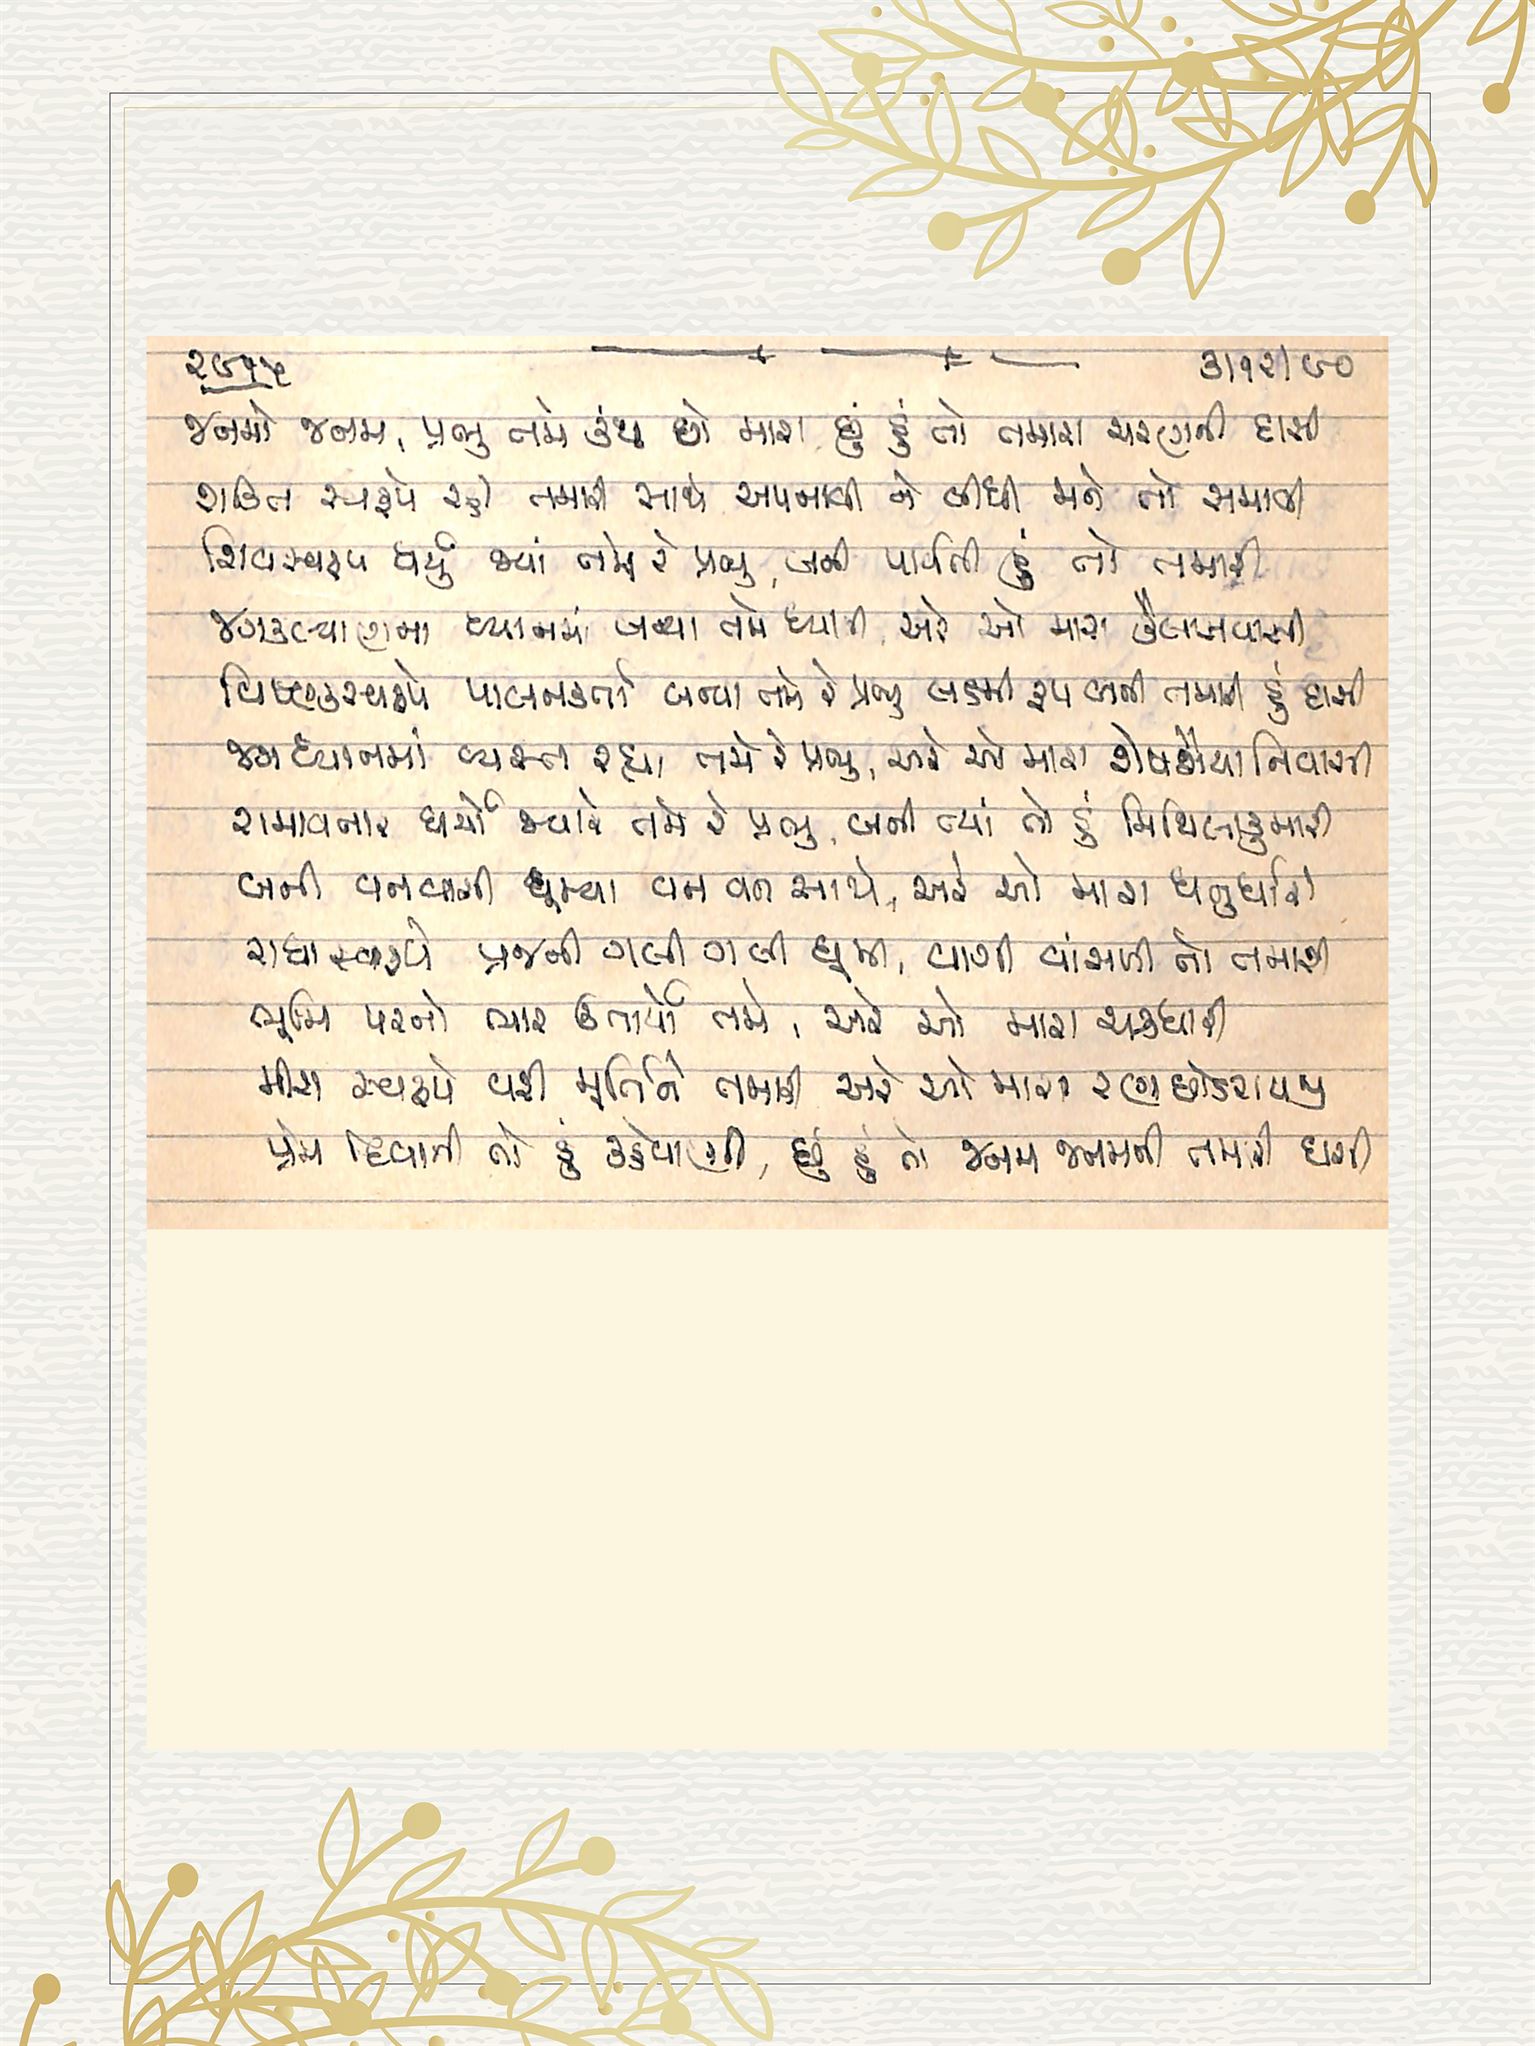 ૨૯૧૫ ૩/૧૨/૯૦
જનમો જનમ, પ્રભુ તમે કંથ છો મારા છું હું તો તમારા ચરણની દાસી
શક્તિ સ્વરૂપે રહી તમારી સાથે અપનાવી ને લીધી મને તો સમાવી
શિવસ્વરૂપ ધર્યું જ્યાં તમે રે પ્રભુ, બની પાર્વતી હું તો તમારી
જગકલ્યાણના ધ્યાનમાં બન્યા તમે ધ્યાની, અરે ઓ મારા કૈલાસવાસી
વિષ્ણુસ્વરૂપે પાલનકર્તા બન્યા તમે રે પ્રભુ લક્ષ્મી રૂપ બની તમારી હું દાસી
જગ ધ્યાનમાં વ્યસ્ત રહ્યા તમે રે પ્રભુ, અરે ઓ મારા શેષશૈયા નિવાસી
રામાવતાર ધર્યો જ્યારે તમે રે પ્રભુ, બની ત્યાં તો હું મિથિલાકુમારી
બની વનવાસી ઘૂમ્યા વન વન સાથે, અરે ઓ મારા ધનુર્ધારી
રાધા સ્વરૂપે વ્રજની ગલી ગલી ઘૂમી, વાગી વાંસળી તો તમારી
ભૂમિ પરનો ભાર ઉતાર્યો તમે, અરે ઓ મારા ચક્રધારી
મીરા સ્વરૂપે વરી મૂર્તિને તમારી અરે ઓ મારા રણછોડરાયજી
પ્રેમ દિવાની તો હું કહેવાણી, છું હું તો જનમ જનમની તમારી દાસી